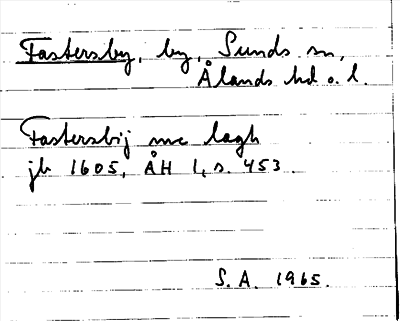 Fastersby, by, Sunds sn,
Ålands hd o. l.
Fastersbÿ mc lagh
jb 1605, ÅH 1, s. 453.
S. A. 1965.